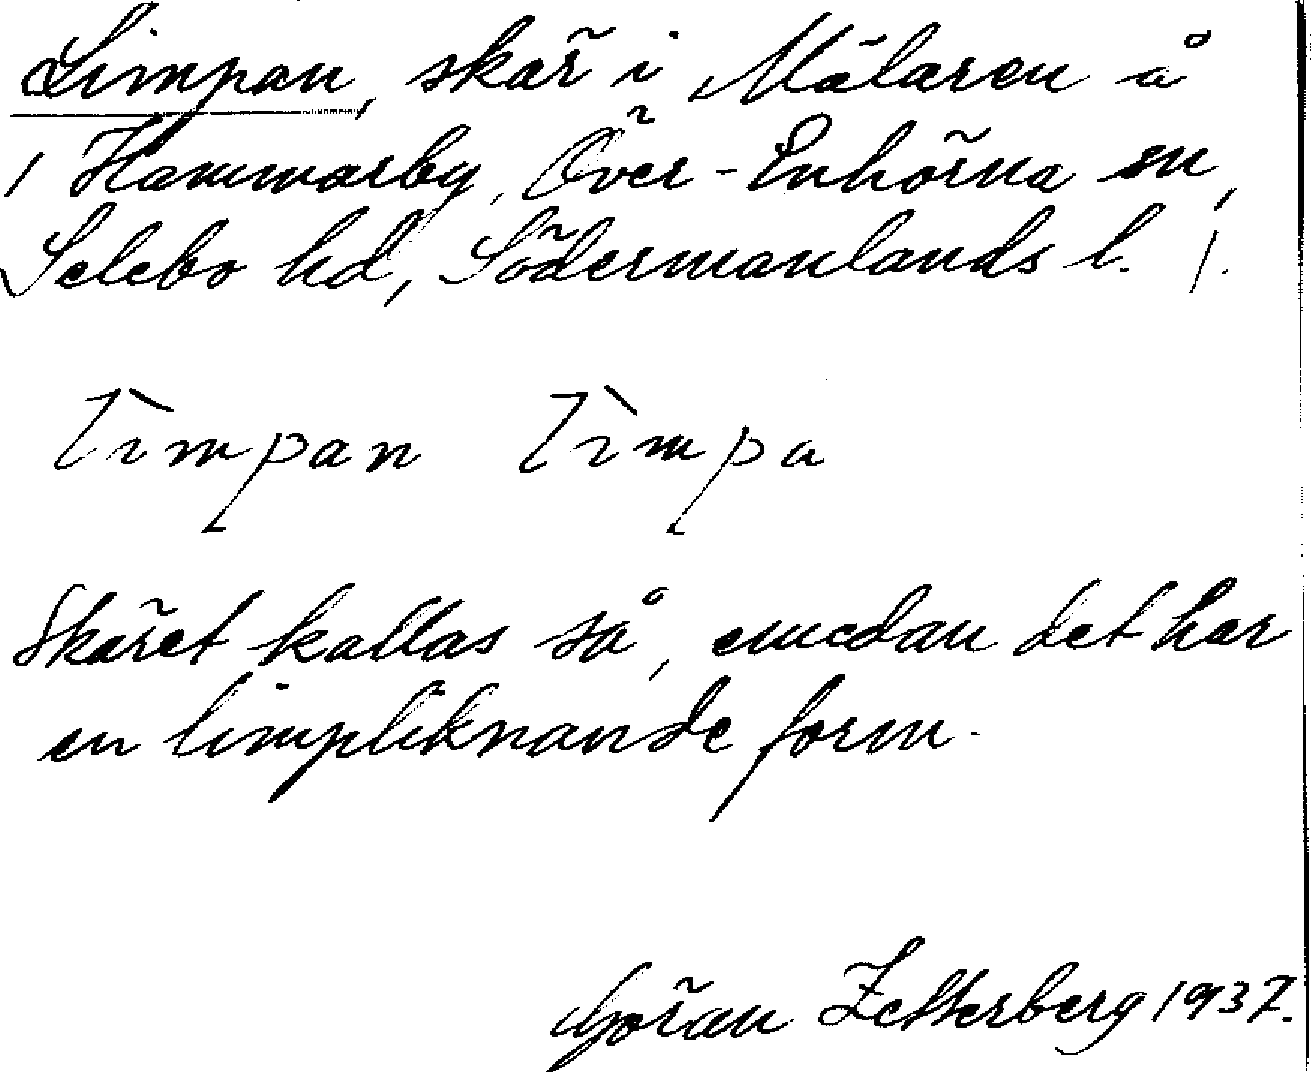 Limpan, skär i Mälaren å
/ Hammarby, Över-Enhörna sn,
Selebo hd, Södermanlands l. /.
lìmpan lìmpa
Skäret kallas så, emedan det har
en limpliknande form.
Göran Zetterberg 1937.